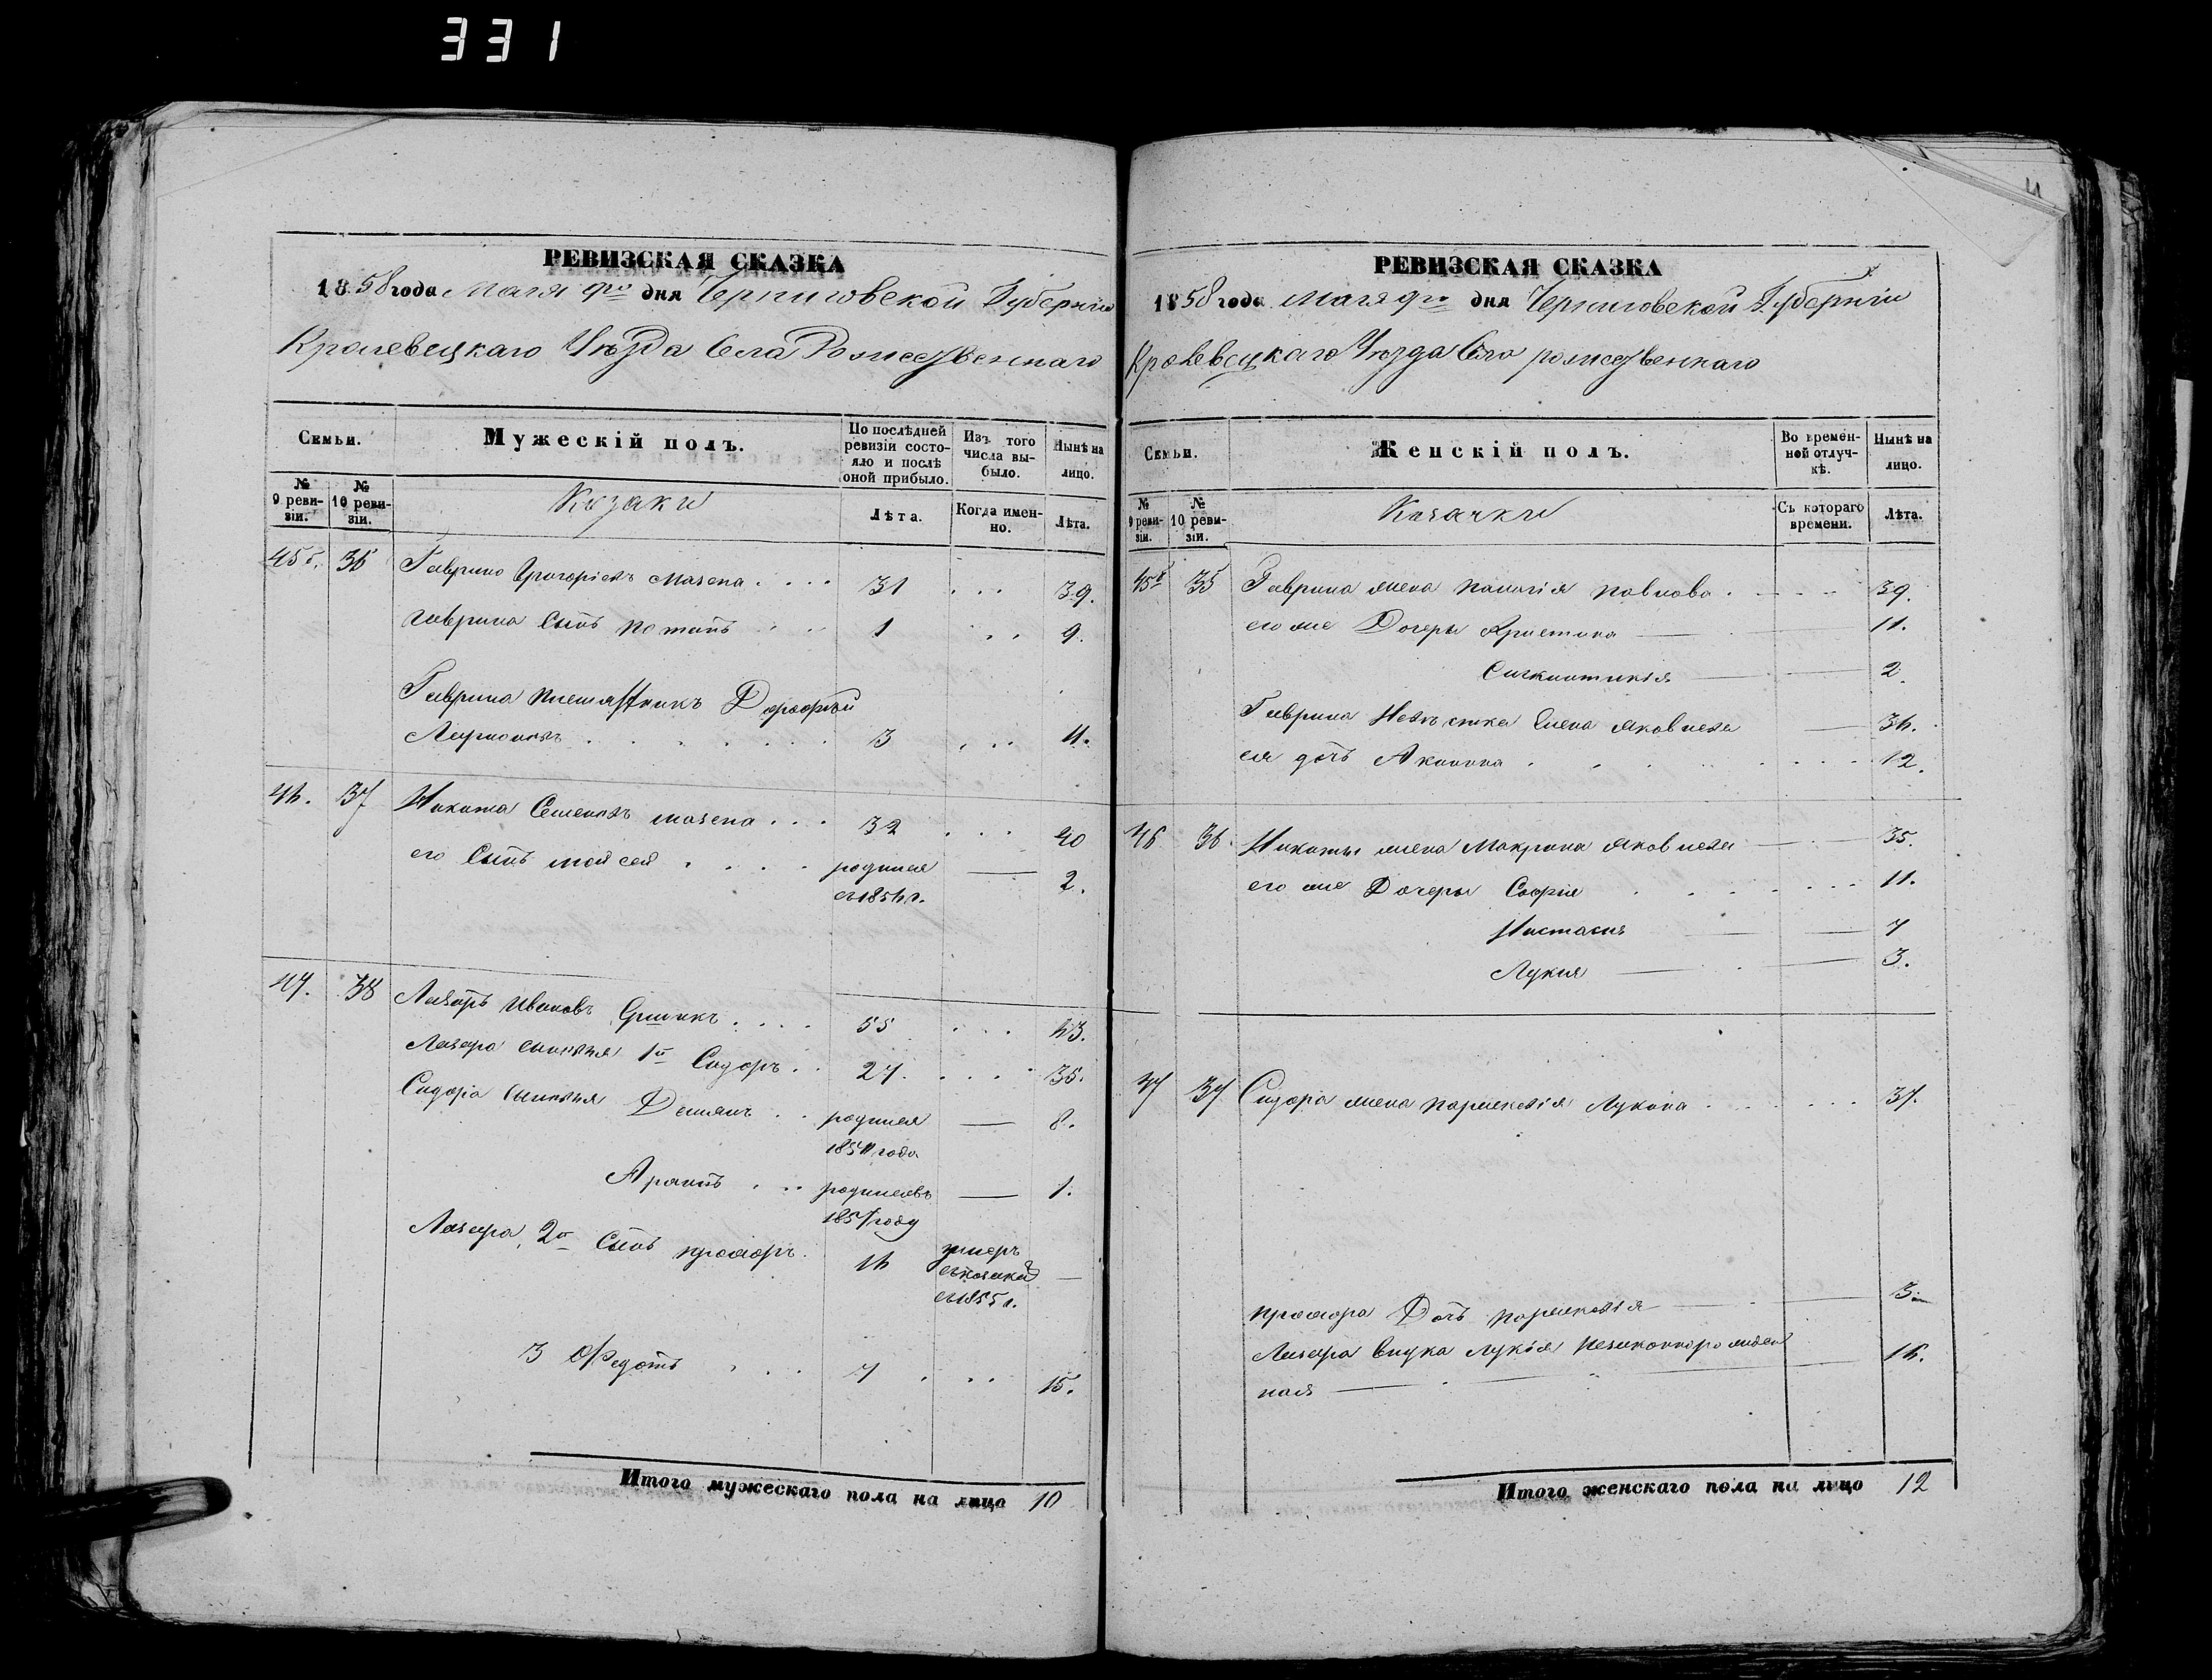 331
РЕВИЗСКАЯ СКАЗКА
1858 года Маія 9го дня Черниговской Губерніи
Кролевецкаго Уѣзда Села Рожественнаго
Семьи.
Мужескій полъ.
По послѣдней ревизіи состояло и послѣ оной прибыло.
Изъ того числа выбыло.
Нынѣ на лицо.
№ 9 ревизіи.
№ 10 ревизіи.
Козаки
Лѣта.
Когда именно.
Лѣта.
45 36 Гаврило Григоріевъ Мазепа . . . . 31 . . . 39.
Гаврила Сынъ Потапъ . . . 1 . . . 9.
Гаврила племянникъ Дорофѣй
Ларіоновъ . . . . . . . 3 . . . 11.
46. 37 Никита Семеновъ мазепа . . . 32 . . . 40
его Сынъ мойсей . . . . родился — 2.
съ 1856 г.
47. 38 Лазарь Ивановъ . . . . 55 . . . 63.
Лазаря сыновья 1й Сидоръ . . 27. . . . . 35.
Сидора Сыновья Демянъ . . родился — 8.
1850 года
. . родился въ — 1.
1857 году
Лазаря 2й Сынъ прохоръ . 16 умеръ —
съ 1855 г.
3 Федотъ . . . 7 . . . 15.
Итого мужескаго пола на лицо 10
РЕВИЗСКАЯ СКАЗКА
1858 года Маія 9го дня Черниговской Губерніи
Кролевецкаго Уѣзда Села рожественнаго
Семьи.
Женскій полъ.
Во временной отлучкѣ.
Нынѣ на лицо.
№ 9 ревизіи.
№ 10 ревизіи.
Козачки
Съ котораго времени.
Лѣта.
45 35 Гаврила жена Палагія Павлова . — — — 39.
его же Дочеры Христина — — 11.
Синклитикія — 2.
Гаврила Невѣстка Елена Яковлева — 36.
ея дочь Акилина . . . . . . . 12.
46 36. Никиты жена Макрина Яковлева — — 35.
его же Дочеры Софія . . . . . . 11.
Настасія — — 7
Лукія — — 3.
47 37 Сидора жена параскевія Лукина . . . . . . 37.
прохора Дочь параскевія — — 3.
Лазаря Внука Лукія незаконнорожден — 16.
ная —
Итого женскаго пола на лицо 12